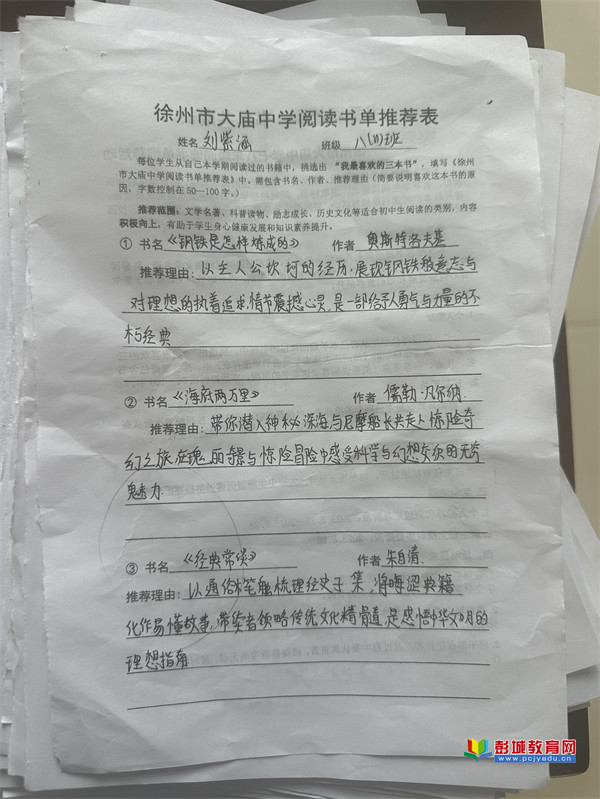 徐州市大庙中学阅读书单推荐表
姓名 刘紫涵 班级 八(11)班
每位学生从自己本学期阅读过的书籍中，挑选出“我最喜欢的三本书”，填写《徐州
市大庙中学阅读书单推荐表》中。需包含书名、作者、推荐理由（简要说明喜欢这本书的原
因，字数控制在50—100字。）
推荐范围：文学名著、科普读物、励志成长、历史文化等适合初中生阅读的类别，内容
积极向上，有助于学生身心健康发展和知识素养提升。
① 书名《钢铁是怎样炼成的》 作者 奥斯特洛夫基
推荐理由：以主人公坎坷的经历，展现钢铁般意志与
对理想的执着追求，情节震撼心灵，是一部给予人勇气与力量的不
朽经典
② 书名《海底两万里》 作者 儒勒·凡尔纳
推荐理由：带你潜入神秘深海，与尼摩船长共走入惊险奇
幻之旅，在瑰丽景与惊险冒险中感受科学与幻想交织的无穷
魅力.
③ 书名《经典常谈》 作者 朱自清
推荐理由：以通俗笔触梳理经史子集，将晦涩典籍
化作易懂故事，带读者领略传统文化精骨道，是悟中华文明的
理想指南
彭城教育网
www.pcjyedu.cn